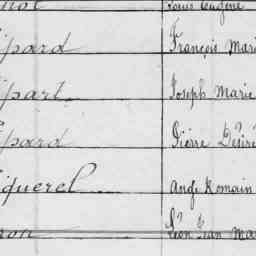 Louis Eugène
épard François Mari
épart Joseph Marie
épard Pierre Désiré
iquerel Ange Romain
ron Léon Jean Ma